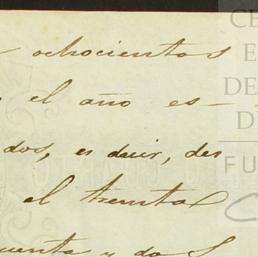 ochocientos
el año es-
dos, es decir, des
el treinta
cuenta y dos
CE
E
DE
D
FU
C